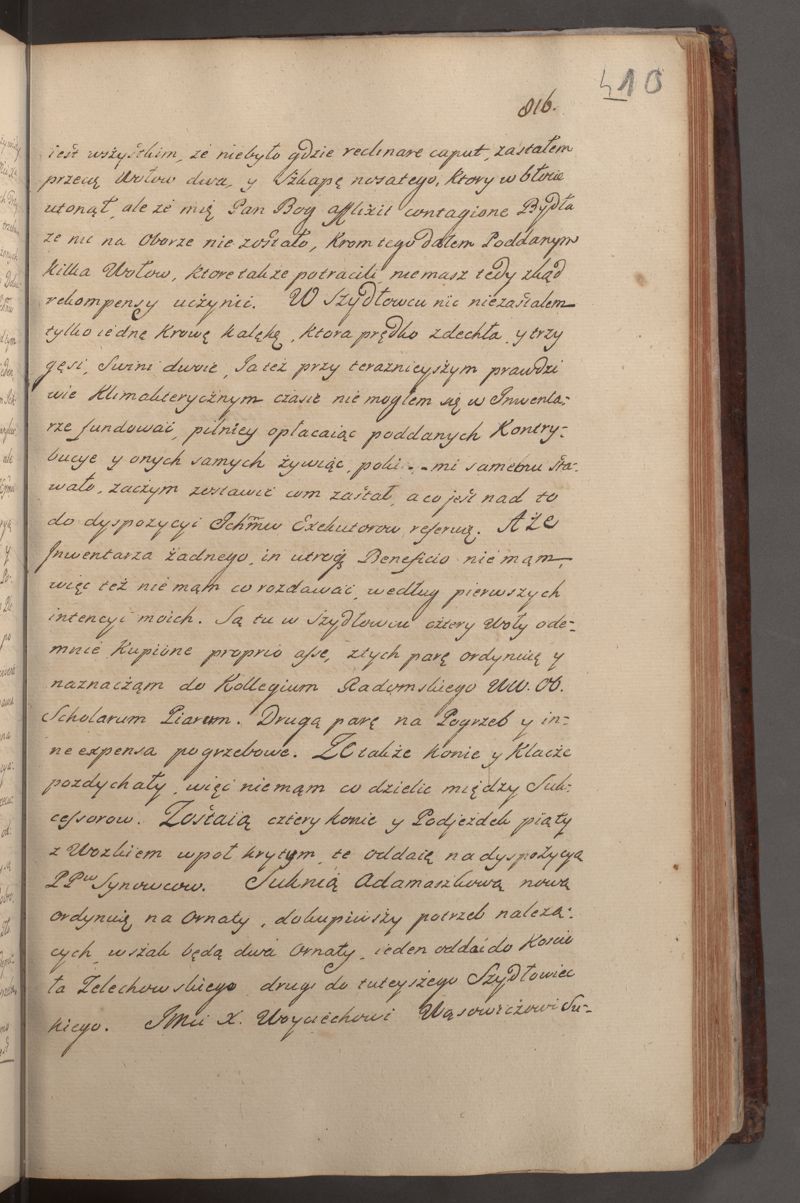 410
816.
iest wszystkim, że niebyło gdzie reclinare caput, zastałem
przecię Wołow dwa, y Szkapę nosatego, ktory w błocie
utonął, ale że mię Pan Bog afflixit contagione Bydła
że nic na Oborze nie zostało, krom tego dałem Poddanym
kilka Wołow, ktore także potracili, niemasz tedy zkąd
rekompensy uczynić. W Szydłowcu nic niezastałem
tylko iednę Krowę kalękę, ktora prędko zdechła, y trzy
gęsi, Swini dwoie, Ia też przy teraznieyszym prawdzi
wie Klimakterycznym czasie nie mogłem się w Inwenta-
rze fundować, pilniey opłacaiąc poddanych Kontry-
bucye y onych samych żywiąc, poki - - mi samemu sta-
wało, zaczym zostawić com zastał, a co jest nad to
do dyspozycyi Ichmw Exekutorow referuię. A że
Inwentarza żadnego, in utroq Beneficio nie mąm,
więc też nie mąm co rozdawać, według pierwszych
intencyi moich. Są tu w Szydłowcu cztery Woły ode-
mnie kupione proprio asse, z tych parę ordynuię y
naznacząm do Kollegium Radomskiego WW. Ob.
Scholarum Piarum. Drugą parę na Pogrzeb y in-
ne expensa pogrzebowe. Że także konie y Klacze
pozdychały, więc niemąm co dzielic między Suk-
cessorow. Zostaią cztery konie y Podjezdek piąty
z Wozkiem wpoł krytym, te oddaię na dyspozycyą
PPw Synowcow. Suknią Adamaszkową nową
ordynuię na Ornaty, dokupiwszy potrzeb należą-
cych, wszak będą dwa Ornaty, ieden oddai do Koscio
ła Zelechowskiego drugi do tuteyszego Szydłowiec
kiego. JMci X. Woyciechowi Wąsowiczowi Su-